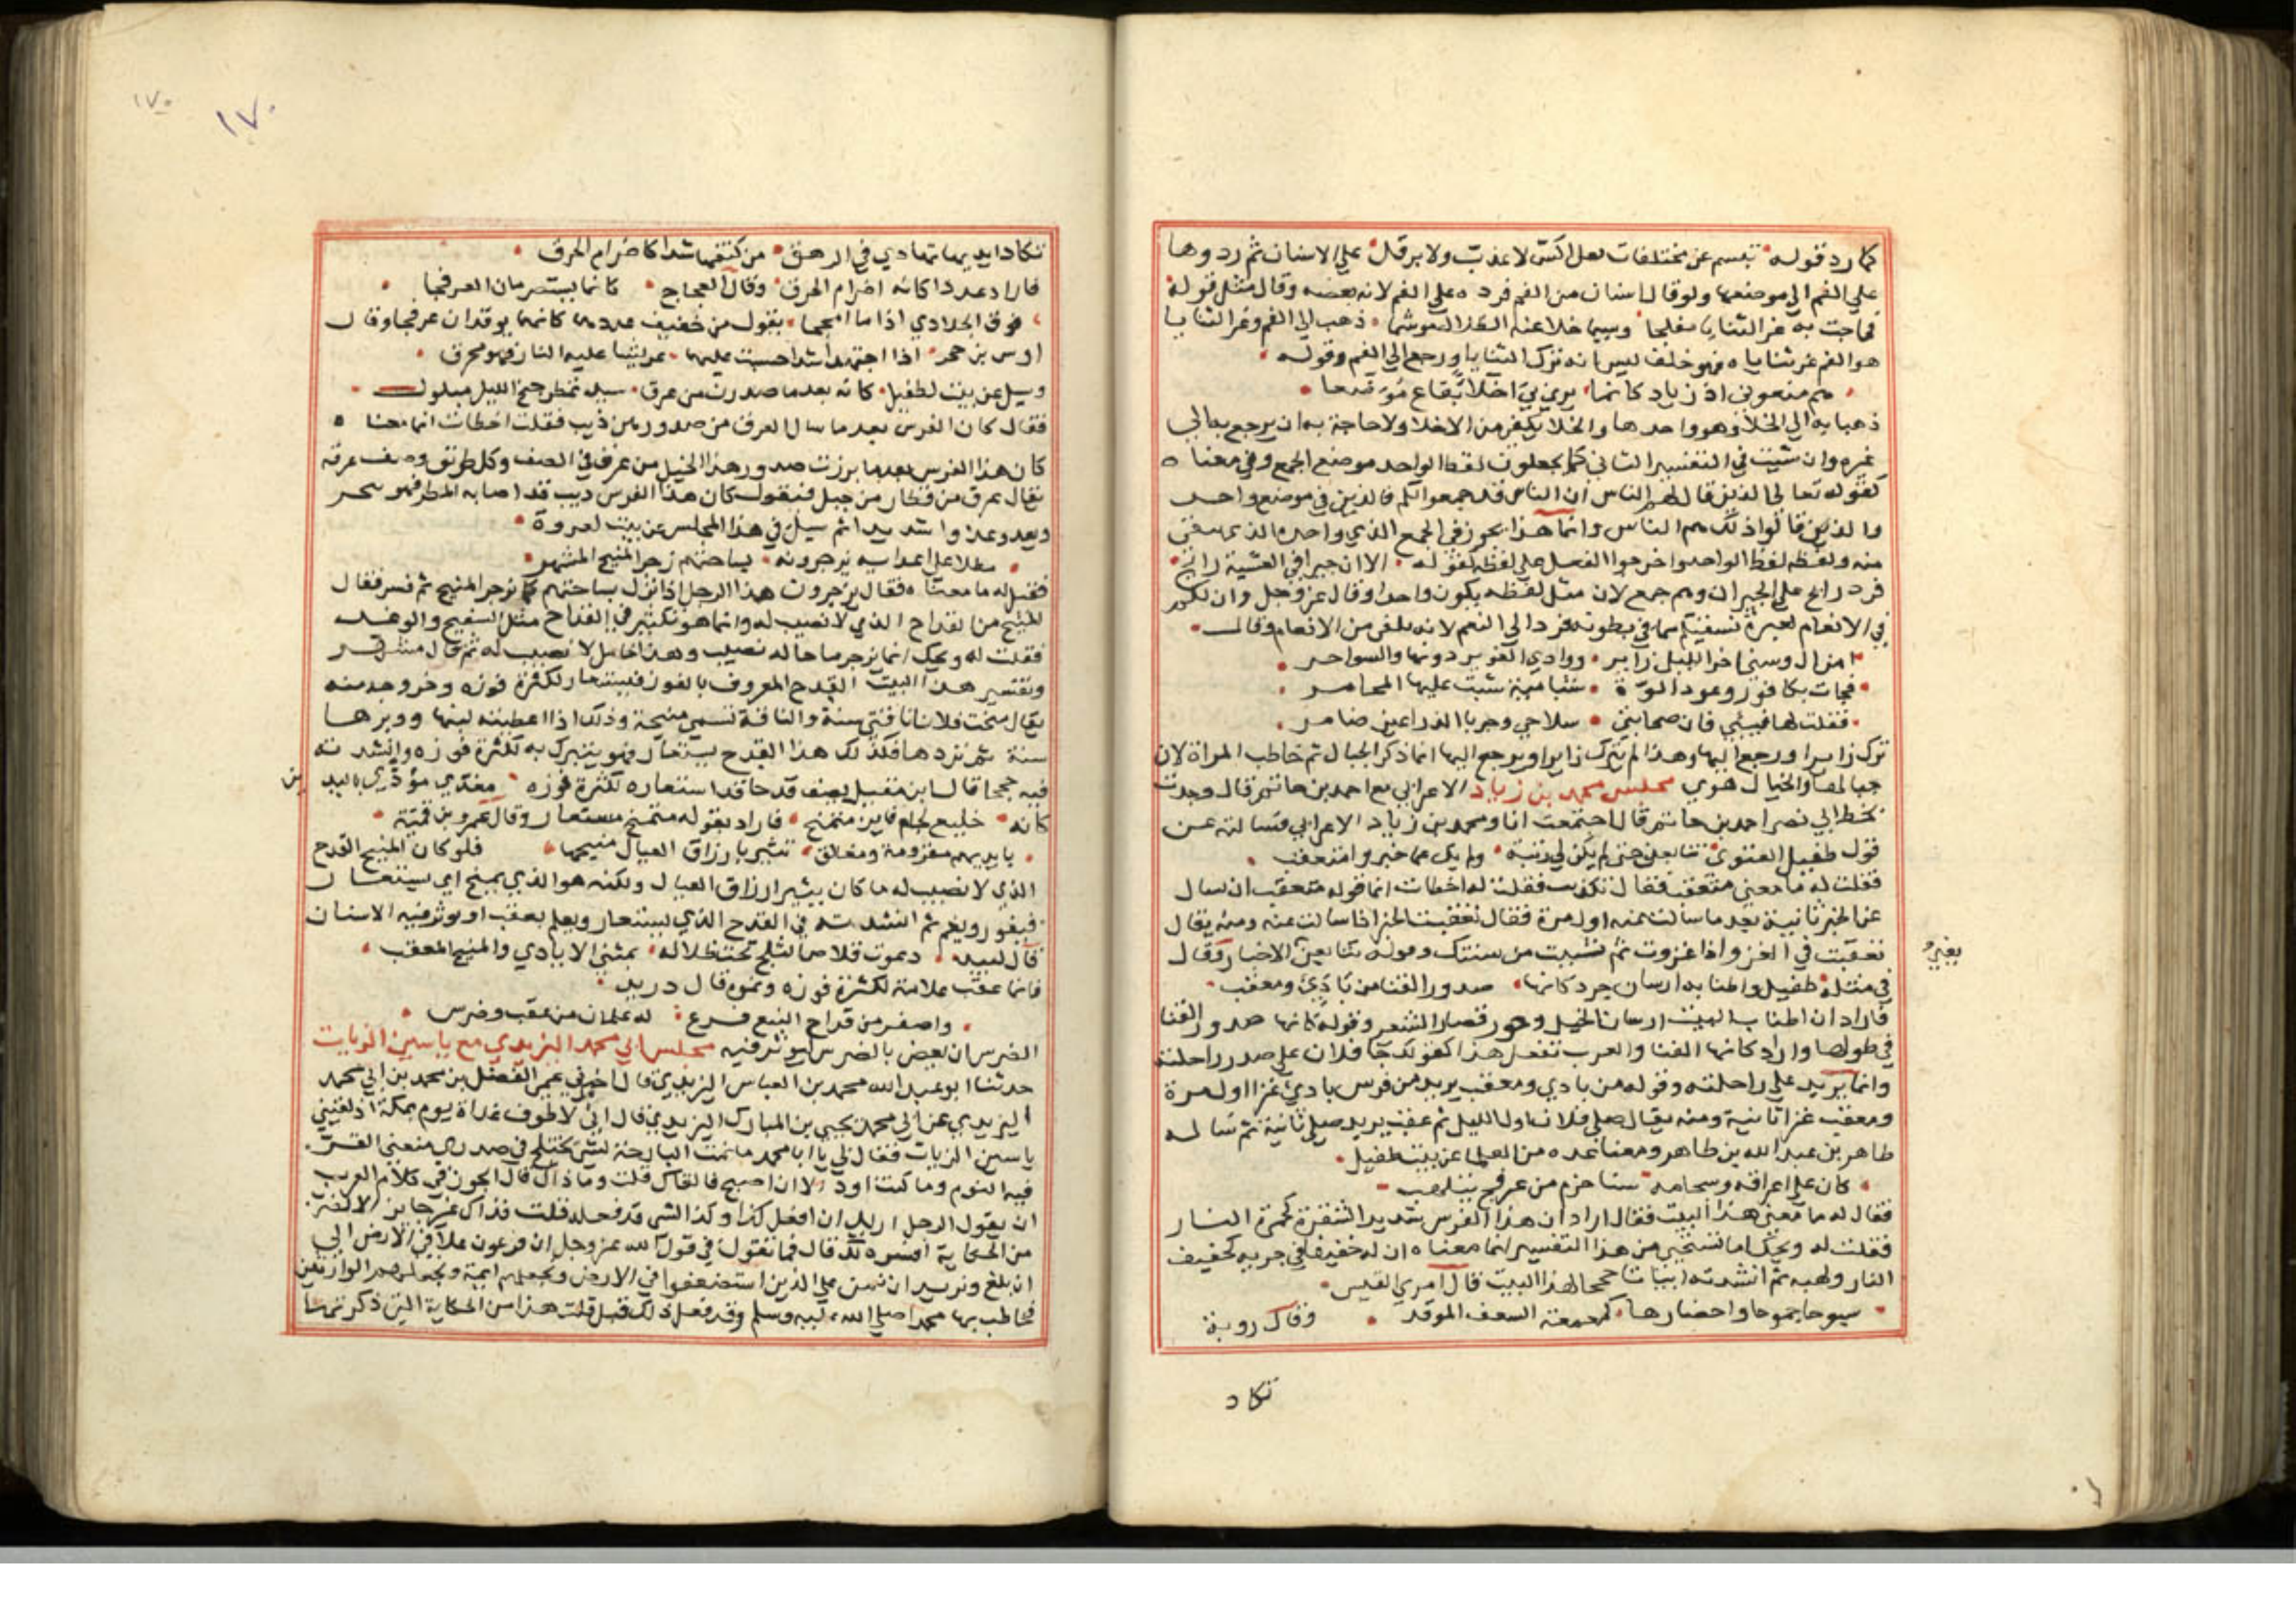 كما رد قوله تبسم عن مختلفات ثعل اكس لا عذب ولا برقل على الاسنان ثم ردوها
على الفم الى موضعها ولو قال اسنان من الفم فرده على الفم لانه بعضه وقال مثل قوله
فماجت به غر الثنايا مفلجا وسيما خلا عنه الموشما ذهب الى الفم وغر الثنايا
هو الفم غر ثناياه فهو خلف ليس انه ترك الثنايا ورجع الى الفم وقوله
هم منعوني اذ زياد كانما يرى بي اخلا بقاع موضعا
ذهبا به الى الخلا وهو واحدها والخلا يكفر من الاخلا ولا حاجة به ان يرجع بها الى
غيره وان شيت في التفسير الثاني كما يجعلون لفظ الواحد موضع الجمع وفي معناه
كقوله تعالى الذين قال لهم الناس ان الناس قد جمعوا لكم فالذين في موضع واحد
والذين قالوا ذلك هم الناس وانما هذا يجوز في الجمع الذي واحده الذي
منه ولفظه لفظ الواحد واخرجوا الفعل على لفظه كقوله الا ان جيرا في العشية رائح
فرد رائح على الجيران وهم جمع لان مثل لفظه يكون واحدا وقال عز وجل وان لكم
في الانعام لعبرة نسقيكم مما في بطونه فرد الى النعم لانه يلغى من الانعام وقال
امن ال وسنى اخر الليل زاير ووادي الغوير دونها والسواجر
فجات بكافور وعود الوة شامية شبت عليها المجامر
فقلت لها فيئي فان صحابتي سلاحي وجربا الذراعين ضامر
ترك زايرا ورجع اليها وهذا لم يترك زايرا ويرجع اليها انما ذكر الخيال ثم خاطب المراة لان
خيالها والخيال هوي مجلس محمد بن زياد الاعرابي مع احمد بن حاتم قال وجدت
بخط ابي نصر احمد بن حاتم قال اجتمعت انا ومحمد بن زياد الاعرابي فسالته عن
قول طفيل الغنوي تتابعن حتى لم يكن لي ريبة ولم يك عما خبروا متعقب
فقلت له ما معنى متعقب فقال تكذيب فقلت له اخطات انما قوله متعقب ان سال
عن الخبر ثانية بعد ما سالت عنه اول مرة فقال تعقبت الخبر اذا سالت عنه ومنه يقال
تعقبت في الغزو اذا غزوت ثم نشيت من سنتك وقوله تتابعن الاخبار وقال
بغيره
في مثله طفيل واطنابه ارسان جرد كانها صدور القنا من بادئ ومعقب
فاراد ان اطناب البيت ارسان الخيل وجرد قصار الشعر وقوله كانها صدور القنا
في طولها واراد كانها القنا والعرب تفعل هذا كقولك جا فلان على صدر راحلته
وانما يريد على راحلته وقوله من بادي ومعقب يريد من فرس بادئ غزا اول مرة
ومعقب غزا ثانية ومنه يقال صلى فلان اول الليل ثم عقب يريد صلى ثانية ثم ساله
طاهر بن عبد الله بن طاهر ومعنا عده من العلما عن بيت طفيل
كان على اعرافه ولجامه سنا ضرم من عرفج يتلهب
فقال له ما معنى هذا البيت فقال اراد ان هذا الفرس شديد الشقرة كحمرة النار
فقلت له ويحك اما تستحيي من هذا التفسير انما معناه ان له خفيفا في جريه كخفيف
النار ولهبه ثم انشدته ابيات حججا لهذا البيت قال امري القيس
سبوحا جموحا واحضارها كمعمعة السعف الموقد وقال روبة
تكاد
١٧٠
١٧٠
تكاد ايديها تهادي في الرهق من كفتها شدا كاضرام الحرق
فاراد عدوا كانه اضرام الحرق وقال العجاج كانما يستضرمان العرفجا
فوق الجلاذي اذا ما امججا يقول من خفيف عدوهما كانهما يوقدان عرفجا وقال
اوس بن حجر اذا اجتهدا شدا حسبت عليهما عريشا عليه النار فهو محرق
وسيل عن بيت لطفيل كانه بعد ما صدرن من عرق سيد تمطر جنح الليل مبلول
فقال كان الفرس بعد ما سال العرق من صدورهن ذيب فقلت اخطات انما معناه
كان هذا الفرس بعد ما برزت صدور هذا الخيل من عرق في الصف وكل طريق وصف عرقه
يقال عرق من قطار من جبل فيقول كان هذا الفرس ذيب قد اصابه المطر فهو
ويعدو عدوا شديدا ثم سيل في هذا المجلس عن بيت لعروة
مطلا على اعدايه يزجرونه بساحتهم زجر المنيح المشهر
فقيل له ما معناه فقال يزجرون هذا الرجل اذا نزل بساحتهم كما يزجر المنيح ثم فسر فقال
المنيح من القداح الذي لا نصيب له وانما هو تكثير في القداح مثل السفيح والوغد
فقلت له ويحك انما يزجر ما حا له نصيب وهذا خامل لا نصيب له ثم قال مشهر
وتفسير هذا البيت القدح المعروف بالفوز فيستعار لكثرة فوزه وخروجه منه
يقال منحت فلانا ناقتي سنة والناقة تسمى منيحة وذلك اذا اعطيته لبنها ووبرها
سنة ثم تردها فكذلك هذا القدح يستعار فهو يتبرك به لكثرة فوزه وانشدته
فيه حججا قال ابن مقبل يصف قدحا قد استعاره لكثرة فوزه مفدى مؤدى باليدين
كانه خليع لحام فايز متمنح فاراد بقوله متمنح مستعار وقال عمرو بن قميئة
بايديهم مقرومة ومغالق تثير بارزاق العيال منيحها فلو كان المنيح القدح
الذي لا نصيب له ما كان يثير ارزاق العيال ولكنه هو الذي يمنح اي يستعار
فيفوز ويغنم ثم انشدته في القدح الذي يستعار ويعلم بعقب او يوثر فيه الاسنان
قال لبيد ذعرت قلاص الثلج تحت ظلاله بمثنى الايادي والمنيح المعقب
فانما عقب علامة لكثرة فوزه ونحوه قال دريد
واصفر من قداح النبع فرع له علمان من عقب وضرس
الضرس ان يعض بالضرس ليوثر فيه مجلس ابي محمد اليزيدي مع ياسين الزيات
حدثنا ابو عبد الله محمد بن العباس اليزيدي قال اخبرني عمي الفضل بن محمد بن ابي محمد
اليزيدي عن ابي محمد يحيى بن المبارك اليزيدي قال اني لاطوف غداة يوم بمكة اذ لقيني
ياسين الزيات فقال لي يا ابا محمد ما نمت البارحة لشي يختلج في صدري منعني القرن
فيه النوم وما كنت اود الا ان اصبح فالقاك قلت وما ذاك قال ايجوز في كلام العرب
ان يقول الرجل اريد ان افعل كذا وكذا الشي قد فعله قلت فذاك غير جايز الا لضرب
من الحكاية افسره لك قال فما تقول في قول الله عز وجل ان فرعون علا في الارض الى
ان بلغ ونريد ان نمن على الذين استضعفوا في الارض ونجعلهم ايمة ونجعلهم الوارثين
فخاطب بها محمدا صلى الله عليه وسلم وقد فعل ذلك قبل قلت هذا من الحكاية التي ذكرتها